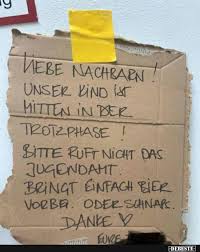 LIEBE NACHBARN !
UNSER KIND IST
MITTEN IN DER
TROTZPHASE !
BITTE RUFT NICHT DAS
JUGENDAMT.
BRINGT EINFACH BIER
VORBEI. ODER SCHNAPS.
DANKE ♡
EURE
DEBESTE